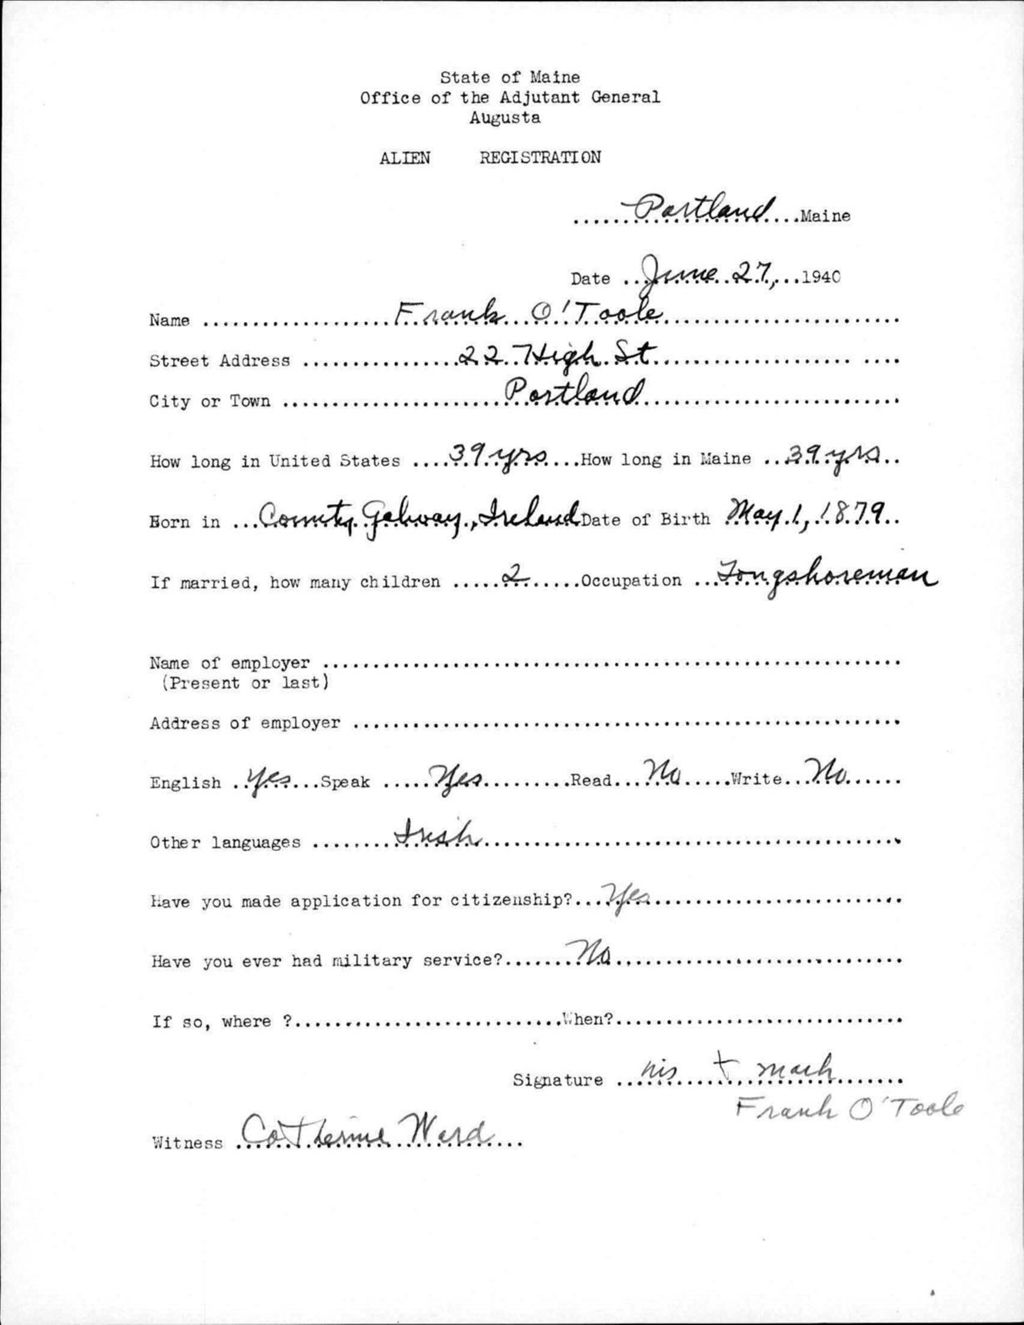 State of Maine
Office of the Adjutant General
Augusta
ALIEN REGISTRATION
......Portland....Maine
Date ..June 27,...1940
Name ...................Frank O'Toole........................
Street Address ................22 High St.................... ....
City or Town ......................Portland..........................
How long in United States ....39 yrs....How long in Maine ..39 yrs..
Born in ...County Galway, Ireland Date of Birth .May 1, 1879..
If married, how many children .....2......Occupation ...Longshoreman
Name of employer ..........................................................
(Present or last)
Address of employer .......................................................
English ..Yes...Speak .....Yes.........Read...No.....Write..No......
Other languages ........Irish..........................................
Have you made application for citizenship?...Yes.........................
Have you ever had military service?.......No.............................
If so, where ?...........................When?.............................
Signature ...his + mark.......
Frank O'Toole
Witness .Catherine Ward...